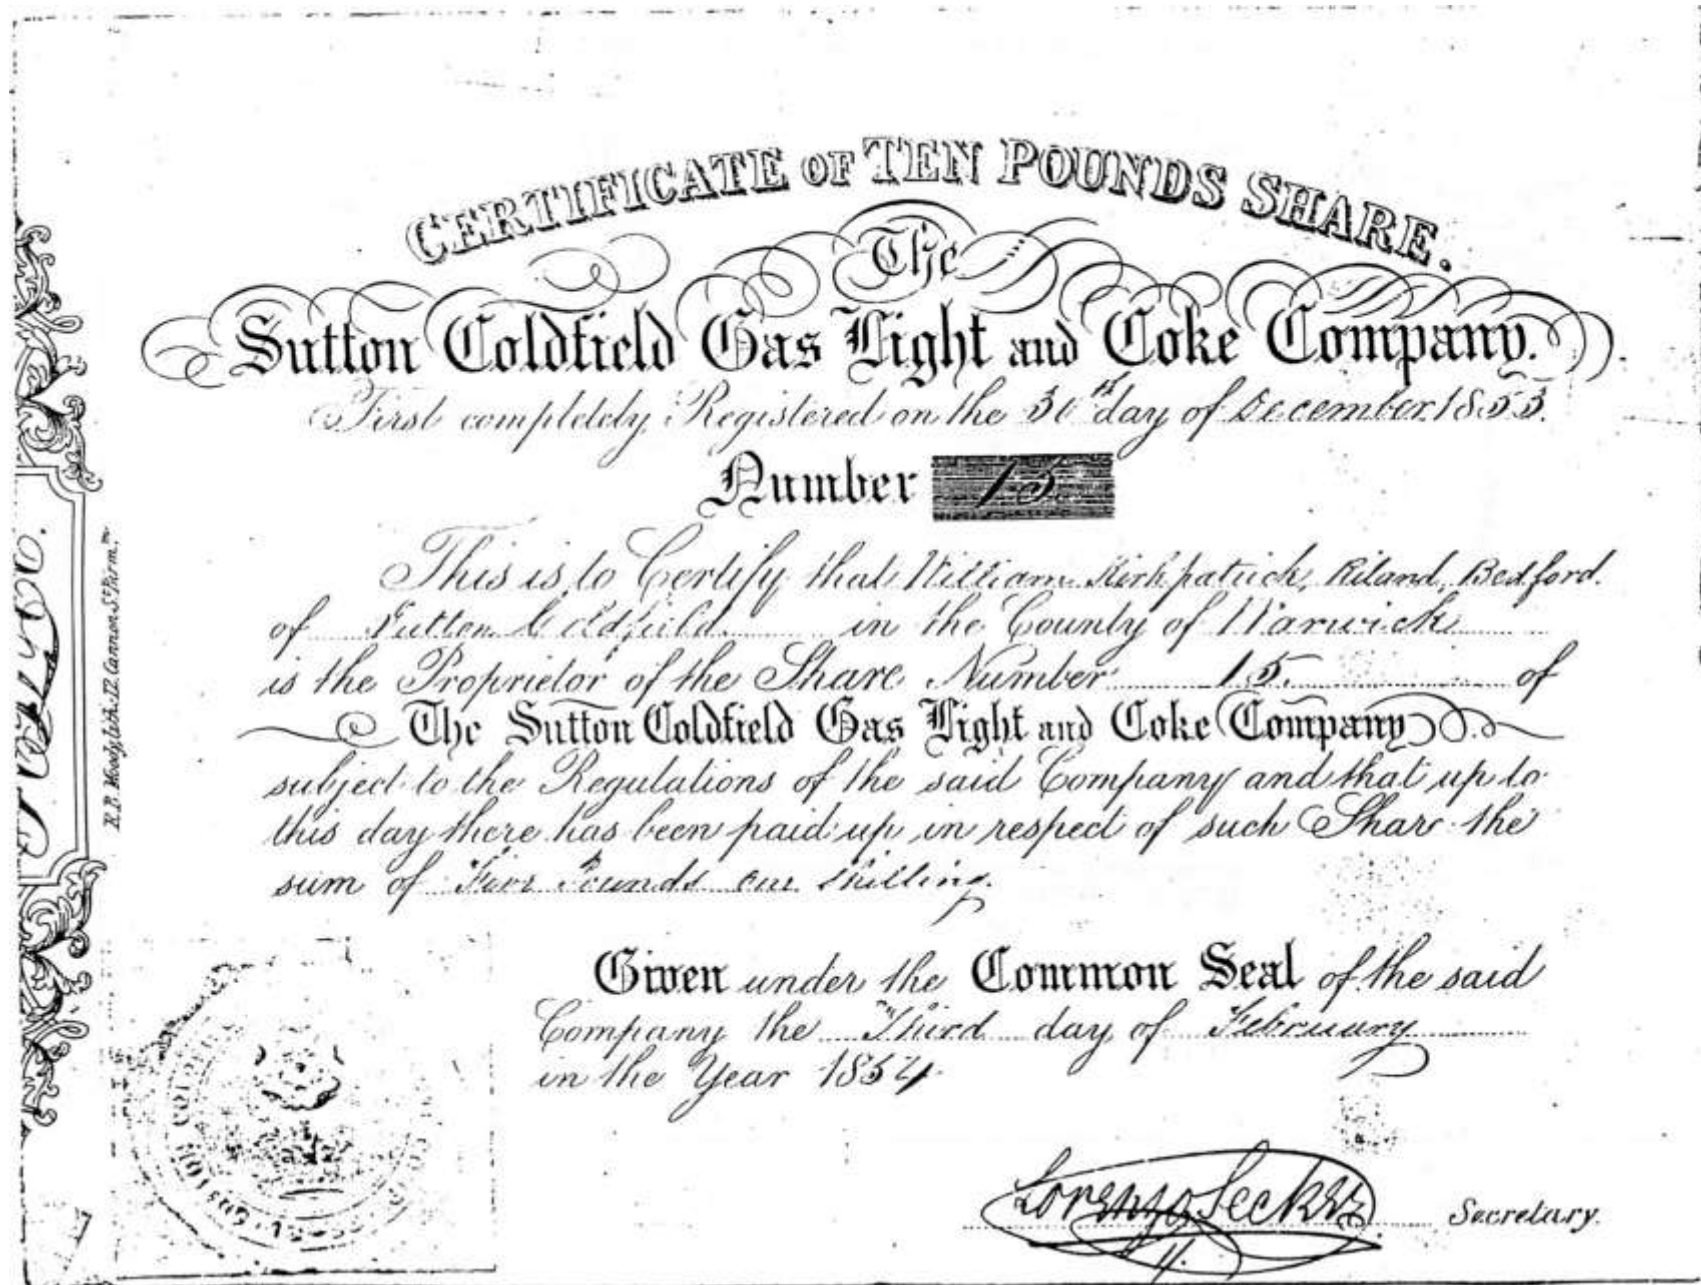 CERTIFICATE OF TEN POUNDS SHARE.
The
Sutton Coldfield Gas Light and Coke Company.
First completely Registered on the 30th day of December 1853.
Number 15
This is to Certify that William Kirkpatrick Riland Bedford.
of Sutton Coldfield in the County of Warwick
is the Proprietor of the Share Number 15. of
The Sutton Coldfield Gas Light and Coke Company
subject to the Regulations of the said Company and that up to
this day there has been paid up in respect of such Share the
sum of Five Pounds one shilling.
Given under the Common Seal of the said
Company the Third day of February
in the Year 1854
Lorenzo Secker Secretary.